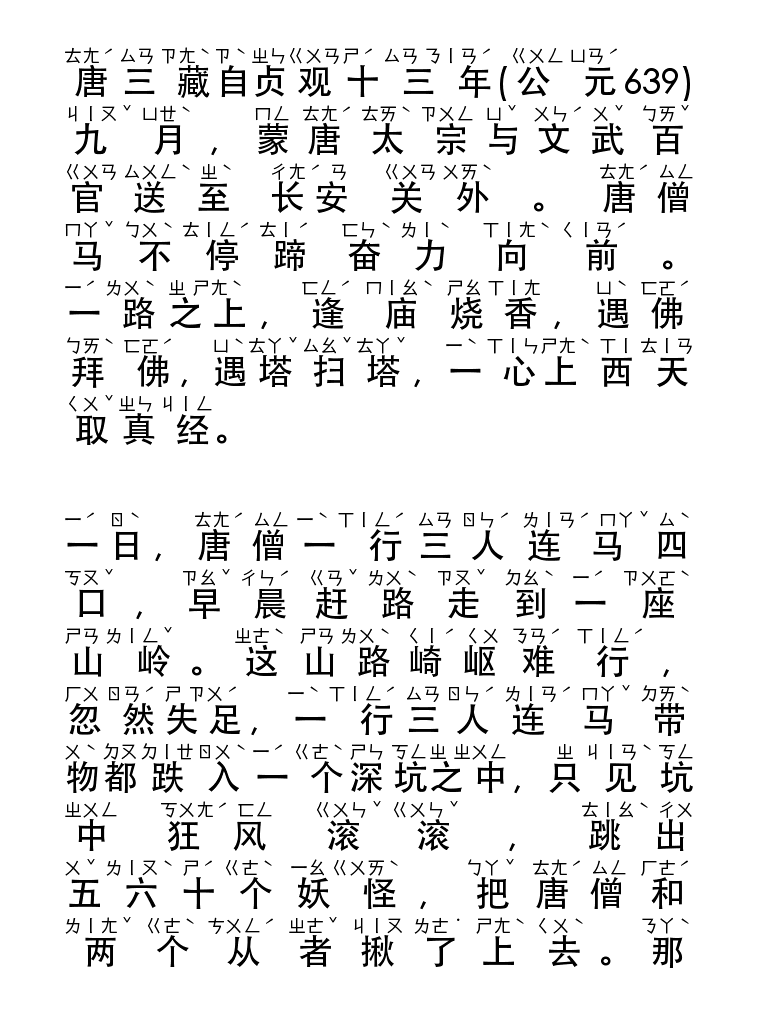 ㄊㄤˊ ㄙㄢ ㄗㄤˋ ㄗˋ ㄓㄣ ㄍㄨㄢ ㄕˊ ㄙㄢ ㄋㄧㄢˊ ㄍㄨㄥ ㄩㄢˊ
唐三藏自贞观十三年(公元639)
ㄐㄧㄡˇ ㄩㄝˋ ㄇㄥ ㄊㄤˊ ㄊㄞˋ ㄗㄨㄥ ㄩˇ ㄨㄣˊ ㄨˇ ㄅㄞˇ
九月,蒙唐太宗与文武百
ㄍㄨㄢ ㄙㄨㄥˋ ㄓˋ ㄔㄤˊ ㄢ ㄍㄨㄢ ㄨㄞˋ ㄊㄤˊ ㄙㄥ
官送至长安关外。唐僧
ㄇㄚˇ ㄅㄨˋ ㄊㄧㄥˊ ㄊㄧˊ ㄈㄣˋ ㄌㄧˋ ㄒㄧㄤˋ ㄑㄧㄢˊ
马不停蹄奋力向前。
ㄧˊ ㄌㄨˋ ㄓ ㄕㄤˋ ㄈㄥˊ ㄇㄧㄠˋ ㄕㄠ ㄒㄧㄤ ㄩˋ ㄈㄛˊ
一路之上,逢庙烧香,遇佛
ㄅㄞˋ ㄈㄛˊ ㄩˋ ㄊㄚˇ ㄙㄠˇ ㄊㄚˇ ㄧˋ ㄒㄧㄣ ㄕㄤˋ ㄒㄧ ㄊㄧㄢ
拜佛,遇塔扫塔,一心上西天
ㄑㄨˇ ㄓㄣ ㄐㄧㄥ
取真经。
ㄧˊ ㄖˋ ㄊㄤˊ ㄙㄥ ㄧˋ ㄒㄧㄥˊ ㄙㄢ ㄖㄣˊ ㄌㄧㄢˊ ㄇㄚˇ ㄙˋ
一日,唐僧一行三人连马四
ㄎㄡˇ ㄗㄠˇ ㄔㄣˊ ㄍㄢˇ ㄌㄨˋ ㄗㄡˇ ㄉㄠˋ ㄧˊ ㄗㄨㄛˋ
口,早晨赶路走到一座
ㄕㄢ ㄌㄧㄥˇ ㄓㄜˋ ㄕㄢ ㄌㄨˋ ㄑㄧˊ ㄑㄨ ㄋㄢˊ ㄒㄧㄥˊ
山岭。这山路崎岖难行,
ㄏㄨ ㄖㄢˊ ㄕ ㄗㄨˊ ㄧˋ ㄒㄧㄥˊ ㄙㄢ ㄖㄣˊ ㄌㄧㄢˊ ㄇㄚˇ ㄉㄞˋ
忽然失足,一行三人连马带
ㄨˋ ㄉㄡ ㄉㄧㄝ ㄖㄨˋ ㄧˊ ㄍㄜˋ ㄕㄣ ㄎㄥ ㄓ ㄓㄨㄥ ㄓ ㄐㄧㄢˋ ㄎㄥ
物都跌入一个深坑之中,只见坑
ㄓㄨㄥ ㄎㄨㄤˊ ㄈㄥ ㄍㄨㄣˇ ㄍㄨㄣˇ ㄊㄧㄠˋ ㄔㄨ
中狂风滚滚,跳出
ㄨˇ ㄌㄧㄡˋ ㄕˊ ㄍㄜˋ ㄧㄠ ㄍㄨㄞˋ ㄅㄚˇ ㄊㄤˊ ㄙㄥ ㄏㄜˊ
五六十个妖怪,把唐僧和
ㄌㄧㄤˇ ㄍㄜˋ ㄘㄨㄥˊ ㄓㄜˇ ㄐㄧㄡ ㄌㄜ˙ ㄕㄤˋ ㄑㄨˋ ㄋㄚˋ
两个从者揪了上去。那